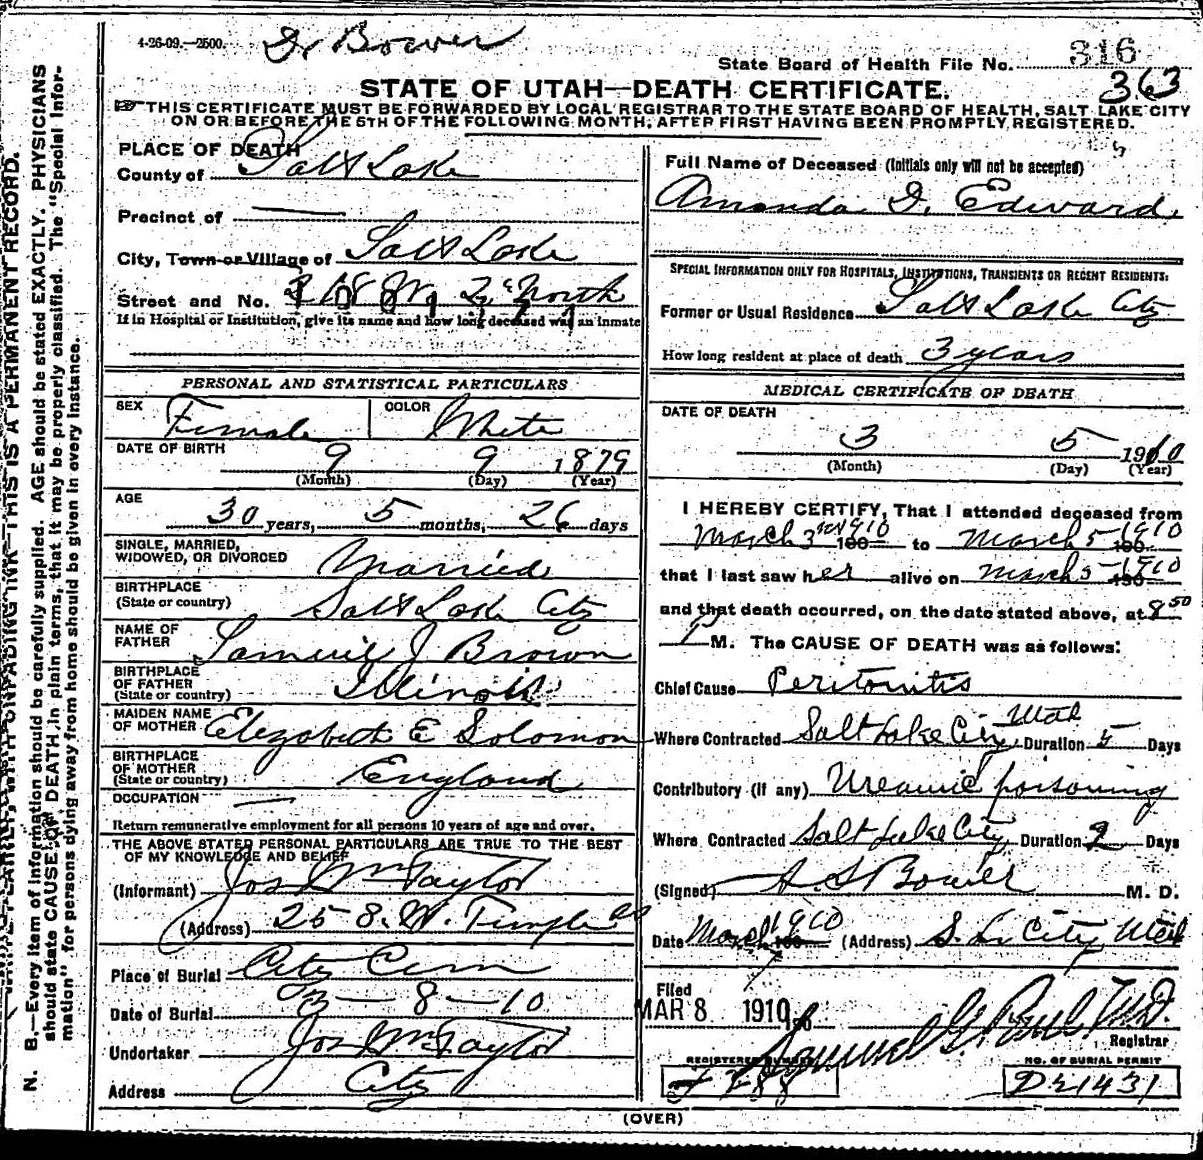 4-26-09.—2500.
Dr Bower
State Board of Health File No. 316
363
STATE OF UTAH—DEATH CERTIFICATE.
THIS CERTIFICATE MUST BE FORWARDED BY LOCAL REGISTRAR TO THE STATE BOARD OF HEALTH, SALT LAKE CITY
ON OR BEFORE THE 5TH OF THE FOLLOWING MONTH, AFTER FIRST HAVING BEEN PROMPTLY REGISTERED.
PLACE OF DEATH
County of Salt Lake
Precinct of —
City, Town or Village of Salt Lake
Street and No. W. 2 North
If in Hospital or Institution, give its name and how long deceased was an inmate
PERSONAL AND STATISTICAL PARTICULARS
SEX Female COLOR White
DATE OF BIRTH 9 9 1879
(Month) (Day) (Year)
AGE
30 years, 5 months, 26 days
SINGLE, MARRIED,
WIDOWED, OR DIVORCED Married
BIRTHPLACE
(State or country) Salt Lake City
NAME OF
FATHER Samuel J Brown
BIRTHPLACE
OF FATHER
(State or country) Illinois
MAIDEN NAME
OF MOTHER Elizabeth E Solomon
BIRTHPLACE
OF MOTHER
(State or country) England
OCCUPATION —
Return remunerative employment for all persons 10 years of age and over.
THE ABOVE STATED PERSONAL PARTICULARS ARE TRUE TO THE BEST
OF MY KNOWLEDGE AND BELIEF
(Informant) Jos Wm Taylor
(Address) 25 S. W. Temple
Place of Burial City Cem
Date of Burial 3—8—10
Undertaker Jos Wm Taylor
Address City
Full Name of Deceased (Initials only will not be accepted)
Amanda I. Edward
SPECIAL INFORMATION ONLY FOR HOSPITALS, INSTITUTIONS, TRANSIENTS OR RECENT RESIDENTS:
Former or Usual Residence Salt Lake City
How long resident at place of death 3 years
MEDICAL CERTIFICATE OF DEATH
DATE OF DEATH
3 5 1910
(Month) (Day) (Year)
I HEREBY CERTIFY, That I attended deceased from
March 3rd 1910 190 to March 5 1910 190
that I last saw her alive on March 5 1910 190
and that death occurred, on the date stated above, at 8 50
P M. The CAUSE OF DEATH was as follows:
Chief Cause Peritonitis
Where Contracted Salt Lake City Utah Duration 5 Days
Contributory (if any) Ureamic poisoning
Where Contracted Salt Lake City Duration 2 Days
(Signed) A. S Bower M. D.
Date March 1910 190 (Address) S. L. City Utah
Filed
MAR 8 1910 190 Samuel G. Paul M.D.
Registrar
REGISTERED NUMBER
NO. OF BURIAL PERMIT
D21431
(OVER)
THIS IS A PERMANENT RECORD.
N. B.—Every item of information should be carefully supplied. AGE should be stated EXACTLY. PHYSICIANS
should state CAUSE OF DEATH in plain terms, that it may be properly classified. The "Special Infor-
mation" for persons dying away from home should be given in every instance.